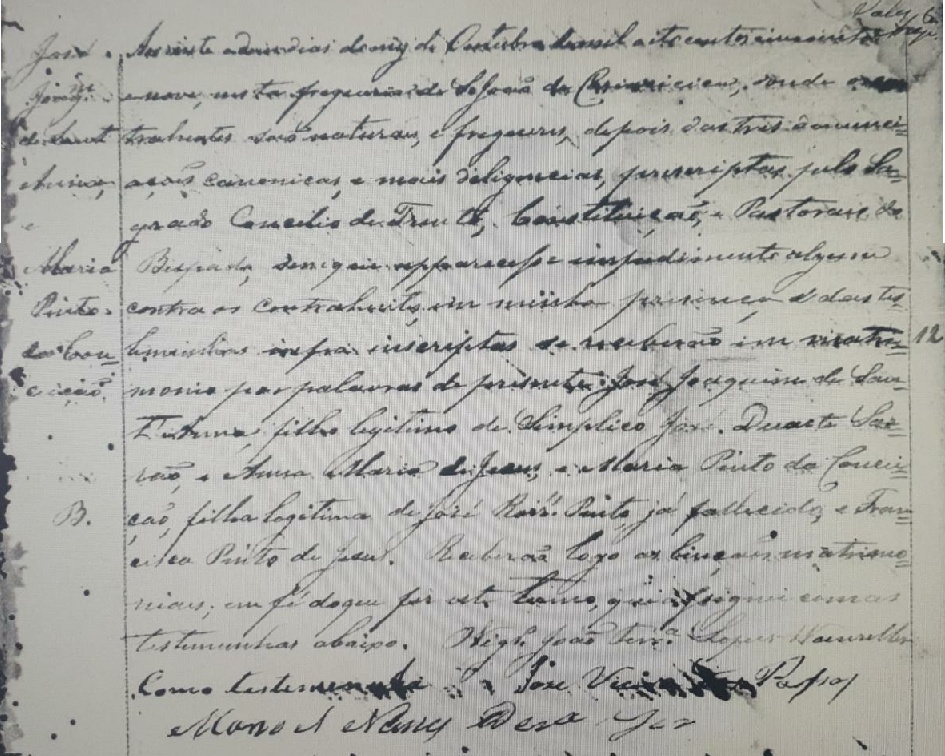 José Aos vinte e dous dias do mez de Outubro de mil oito centos e cincoenta
Joaqm e nove, nesta freguesia de S João de onde os con
de Sant trahentes são naturaes, e freguezes, depois das tres denuncia=
Anna, ações canonicas, e mais deligencias, prescriptas pelo Sa=
e grado Concilio de Trento, Constituição, e Pastoraes do
Maria Bispado, sem que apparecesse impedimento algum
Pinto contra os contrahentes, em minha presença, e das tes
da Con temunhas infra inscriptas se receberão em matri= 12
ceição monio por palavras de presente José Joaquim de San=
t'Anna, filho legitimo de Simplico José Duarte
e Anna Maria de Jesus, e Maria Pinto da Concei=
B. ção, filha legitima de José Roiz Pinto, já fallecido, e Fran=
cisca Pinto de Jesus. Receberão logo as bençãos matrimo=
niaes, em fé do que fiz este termo, que assignei com as
testemunhas abaixo. João Lopes
Como testemunha José Vieira Passos
Manoel Nunes